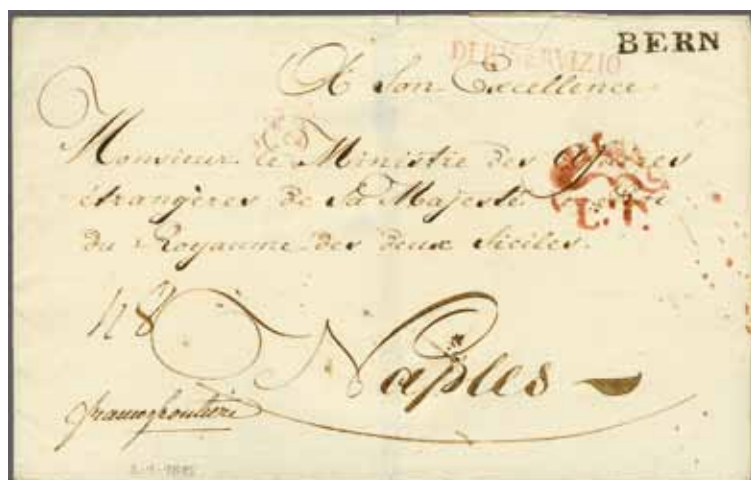 BERN
DI R. SERVIZIO
A Son Excellence
Monsieur le Ministre des Affaires
étrangères de Sa Majesté le Roi
du Royaume des deux Siciles.
N 8
Naples
franco frontière
L.T.